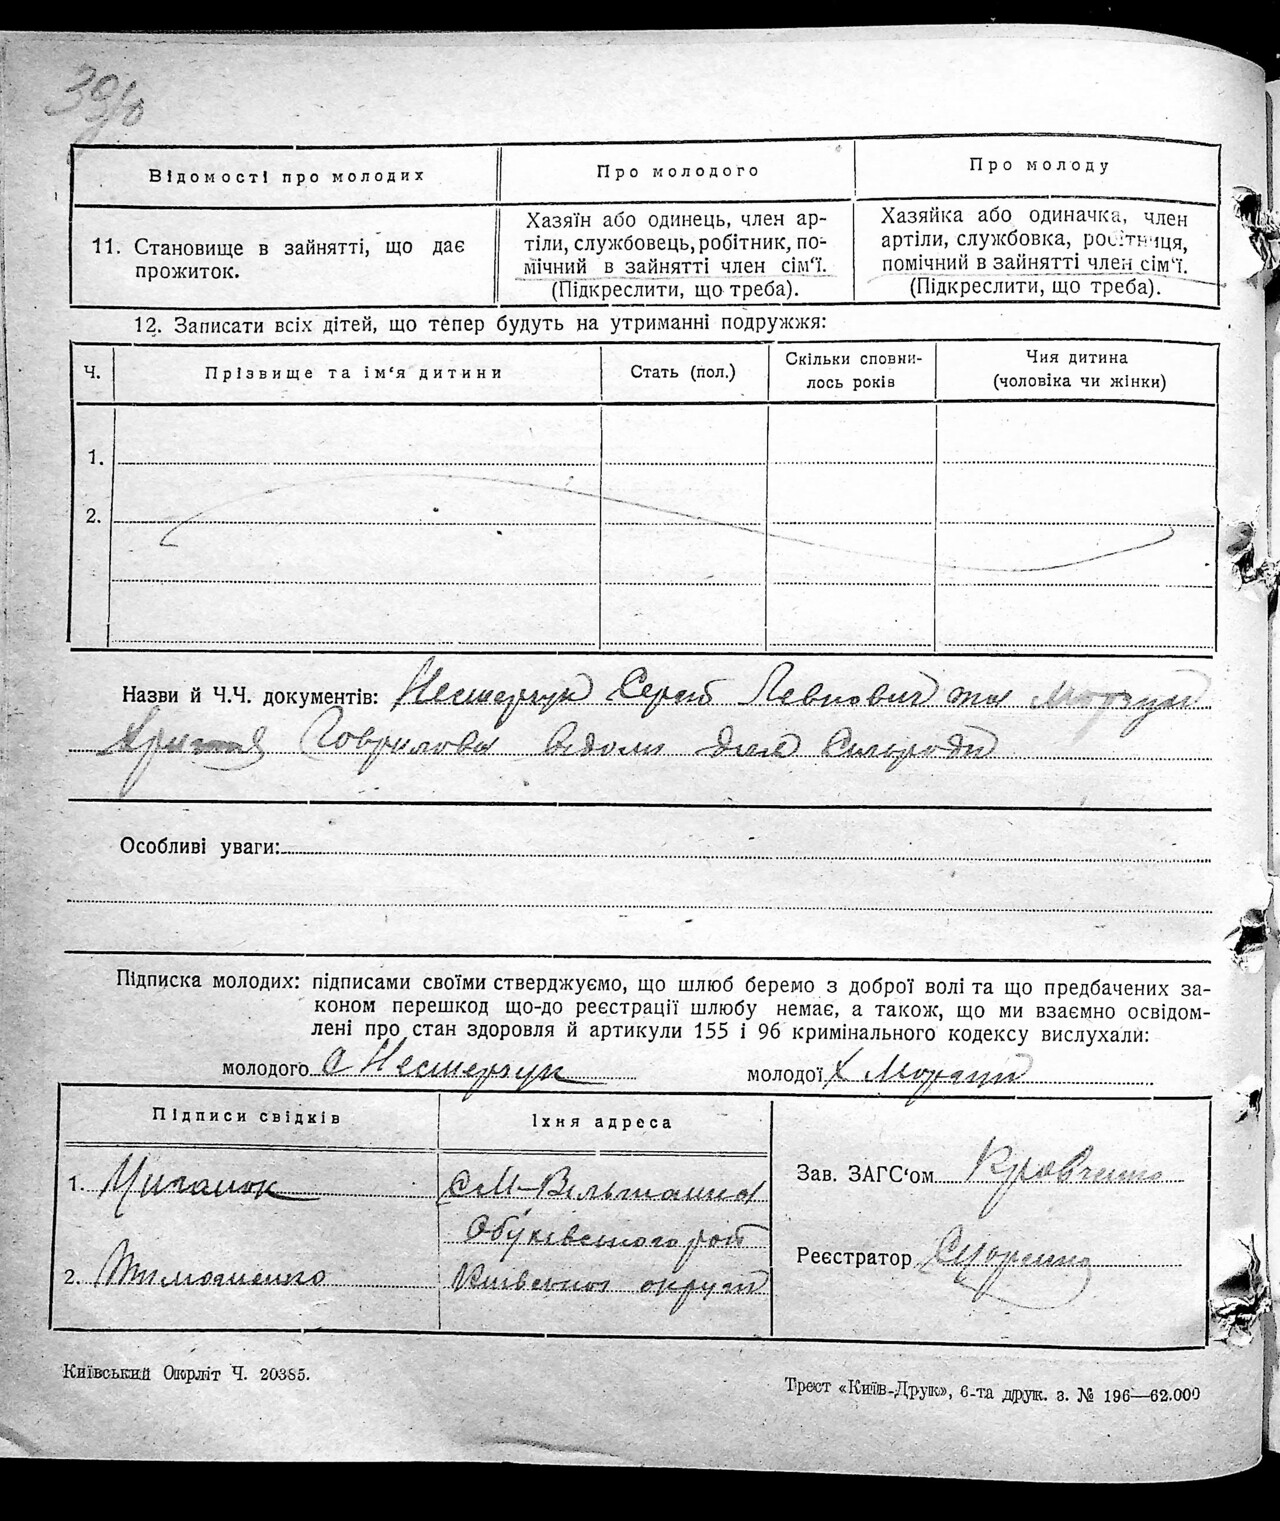 Відомості про молодих
Про молодого
Про молоду
11. Становище в зайнятті, що дає
прожиток.
Хазяїн або одинець, член ар-
тіли, службовець, робітник, по-
мічний в зайнятті член сім'ї.
(Підкреслити, що треба).
Хазяйка або одиначка, член
артіли, службовка, робітниця,
помічний в зайнятті член сім'ї.
(Підкреслити, що треба).
12. Записати всіх дітей, що тепер будуть на утриманні подружжя:
Ч.
Прізвище та ім'я дитини
Стать (пол.)
Скільки сповни-
лось років
Чия дитина
(чоловіка чи жінки)
1.
2.
Назви й Ч.Ч. документів: Нестерчук Сергій та
Гаврилова відомі для Сільради
Особливі уваги:
Підписка молодих: підписами своїми стверджуємо, що шлюб беремо з доброї волі та що предбачених за-
коном перешкод що-до реєстрації шлюбу немає, а також, що ми взаємно освідом-
лені про стан здоровля й артикули 155 і 96 кримінального кодексу вислухали:
молодого С Нестерчук молодої Х
Підписи свідків
Їхня адреса
1. Циганок
с М-Вільшанка
Обухівського рай
2. Тимошенко
Київської округи
Зав. ЗАГС'ом Кравченко
Реєстратор
Київський Окрліт Ч. 20385.
Трест «Київ-Друк», 6-та друк. з. № 196—62.000